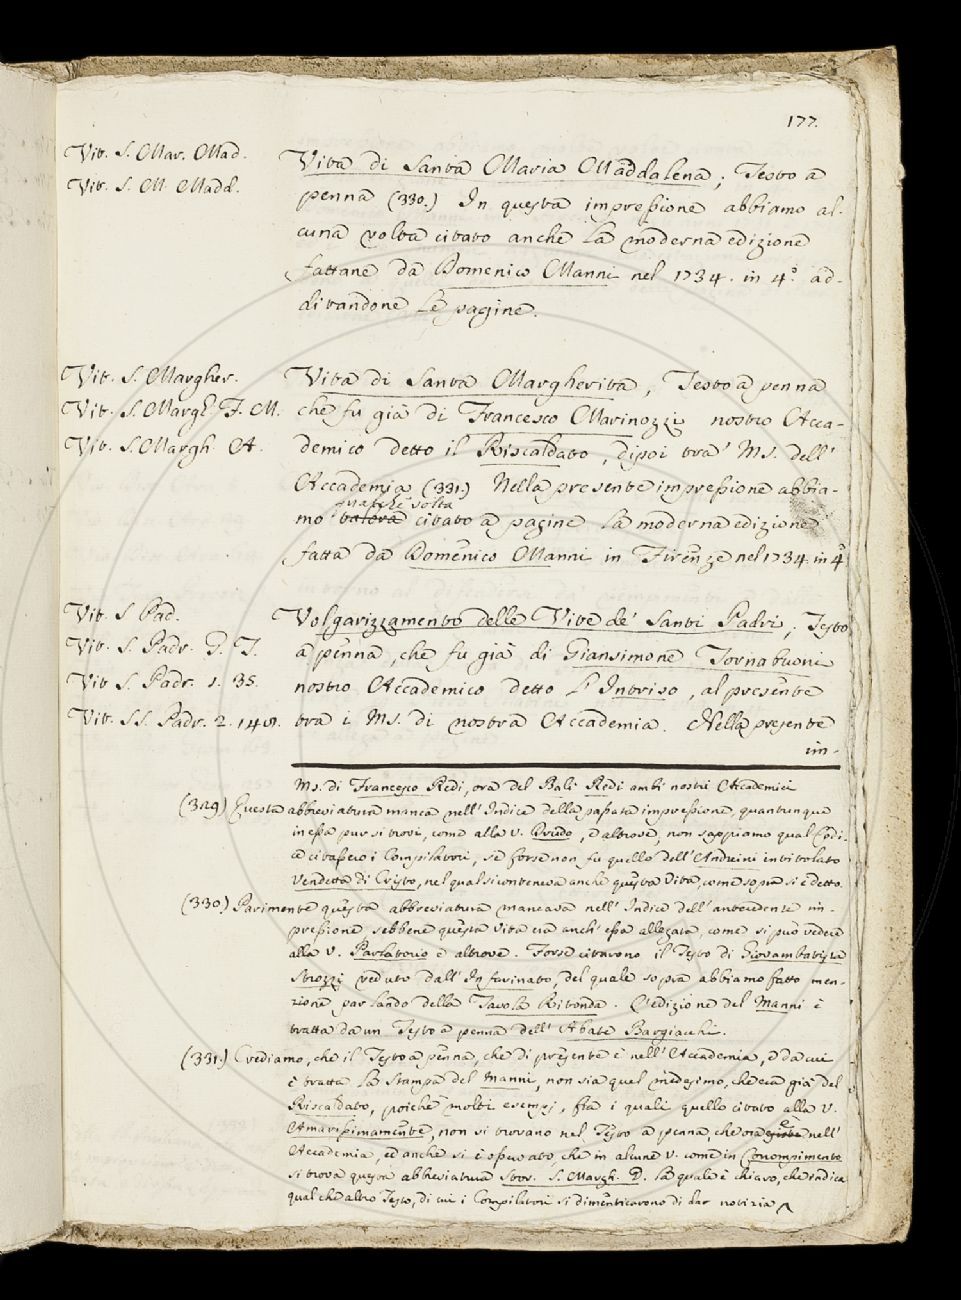 177.
Vit. S. Mar. Mad.
Vit. S. M. Madd.
Vita di Santa Maria Maddalena; Testo a
penna (330.) In questa impressione abbiamo al-
cuna volta citato anche la moderna edizione
fattane da Domenico Manni nel 1734. in 4.° ad-
ditandone le pagine.
Vit. S. Margher.
Vit. S. Margh. F. M.
Vit. S. Margh. A.
Vita di Santa Margherita, Testo a penna
che fu già di Francesco Marinozzi nostro Acca-
demico detto il Riscaldato, dipoi tra' Ms. dell'
Accademia (331.) Nella presente impressione abbia-
qualche volta
mo talora citato a pagine la moderna edizione
fatta da Domenico Manni in Firenze nel 1734. in 4.°
Vit. S. Pad.
Vit. S. Padr. P. I.
Vit. S. Padr. 1. 35.
Vit. SS. Padr. 2. 149.
Volgarizzamento delle Vite de' Santi Padri; Testo
a penna, che fu già di Giansimone Tornabuoni
nostro Accademico detto l'Intriso, al presente
tra i Ms. di nostra Accademia. Nella presente
im-
Ms. di Francesco Redi, ora del Balì Redi ambi nostri Accademici
(329) Questa abbreviatura manca nell' Indice della passata impressione, quantunque
in essa pur si trovi, come alla v. Ovido, e altrove, non sappiamo qual Codi-
ce citassero i Compilatori, se forse non fu quello dell' Andreini intitolato
Vendetta di Cristo, nel qual si conteneva anche questa Vita, come sopra si è detto.
(330.) Parimente questa abbreviatura mancava nell' Indice dell' antecedente im-
pressione, sebbene questa Vita era anch' essa allegata, come si può vedere
alla v. Parlatorio e altrove. Forse citarono il Testo di Giovambatista
Strozzi veduto dall' Infarinato, del quale sopra abbiamo fatto men-
zione parlando della Tavola Ritonda. L'edizione del Manni è
tratta da un Testo a penna dell' Abate Bargiacchi.
(331.) Crediamo, che il Testo a penna, che di presente è nell' Accademia, e da cui
è tratta la stampa del Manni, non sia quel medesimo, che era già del
Riscaldato, poichè molti esempj, fra i quali quello citato alla v.
Amarissimamente, non si trovano nel Testo a penna, che ora è nell'
Accademia, ed anche si è osservato, che in alcune v. come in Corrompimento
si trova questa abbreviatura Stor. S. Margh. D. la quale è chiaro, che indica
qualche altro Testo, di cui i Compilatori si dimenticarono di dar notizia